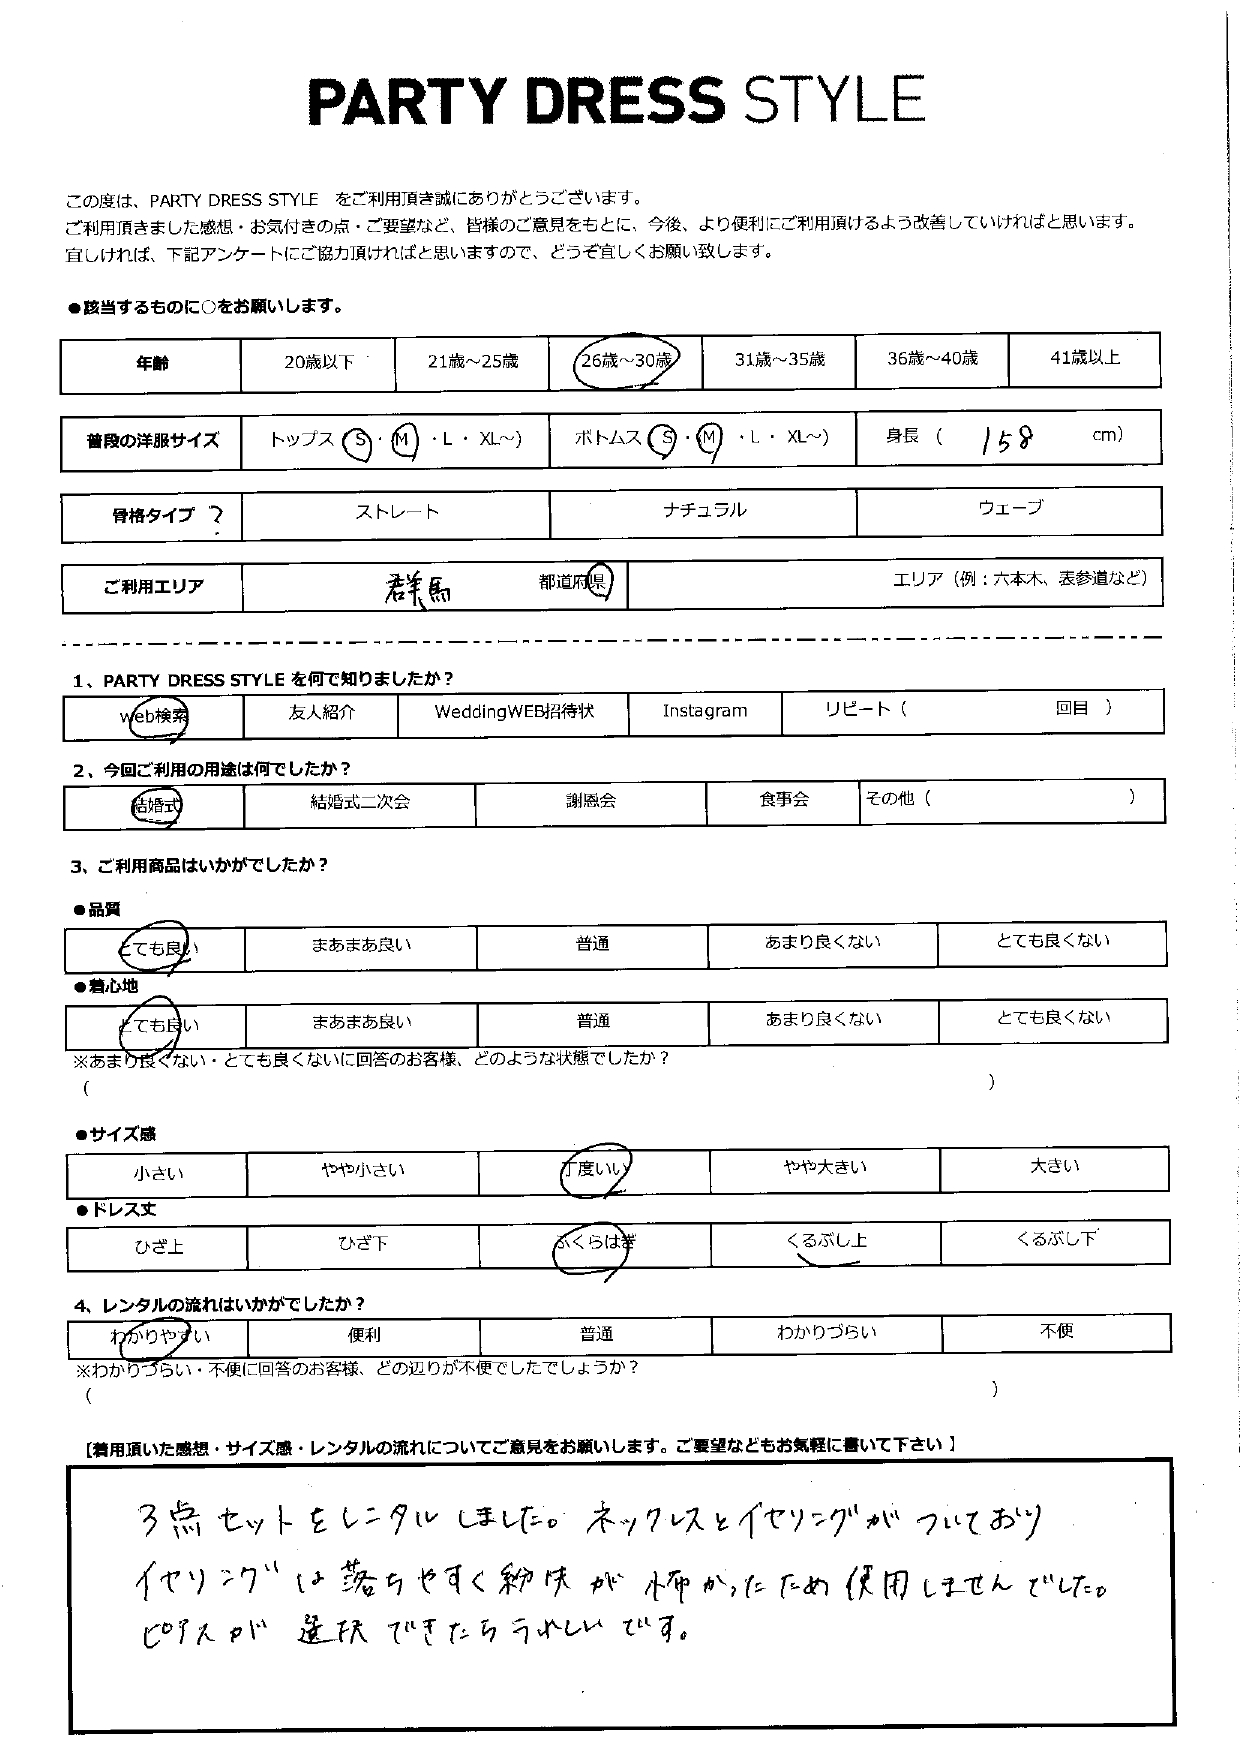 PARTY DRESS STYLE
この度は、PARTY DRESS STYLE をご利用頂き誠にありがとうございます。
ご利用頂きました感想・お気付きの点・ご要望など、皆様のご意見をもとに、今後、より便利にご利用頂けるよう改善していければと思います。
宜しければ、下記アンケートにご協力頂ければと思いますので、どうぞ宜しくお願い致します。
●該当するものに○をお願いします。
年齢 20歳以下 21歳～25歳 26歳～30歳 31歳～35歳 36歳～40歳 41歳以上
普段の洋服サイズ トップス（S・M・L・XL～） ボトムス（S・M・L・XL～） 身長（ 158 cm）
骨格タイプ ？ ストレート ナチュラル ウェーブ
ご利用エリア 群馬 都道府県 エリア（例：六本木、表参道など）
1、PARTY DRESS STYLE を何で知りましたか？
web検索 友人紹介 WeddingWEB招待状 Instagram リピート（ 回目 ）
2、今回ご利用の用途は何でしたか？
結婚式 結婚式二次会 謝恩会 食事会 その他（ ）
3、ご利用商品はいかがでしたか？
●品質
とても良い まあまあ良い 普通 あまり良くない とても良くない
●着心地
とても良い まあまあ良い 普通 あまり良くない とても良くない
※あまり良くない・とても良くないに回答のお客様、どのような状態でしたか？
（ ）
●サイズ感
小さい やや小さい 丁度いい やや大きい 大きい
●ドレス丈
ひざ上 ひざ下 ふくらはぎ くるぶし上 くるぶし下
4、レンタルの流れはいかがでしたか？
わかりやすい 便利 普通 わかりづらい 不便
※わかりづらい・不便に回答のお客様、どの辺りが不便でしたでしょうか？
（ ）
【着用頂いた感想・サイズ感・レンタルの流れについてご意見をお願いします。ご要望などもお気軽に書いて下さい 】
3点セットをレンタルしました。ネックレスとイヤリングがついており
イヤリングは落ちやすく紛失が怖かったため使用しませんでした。
ピアスが選択できたらうれしいです。